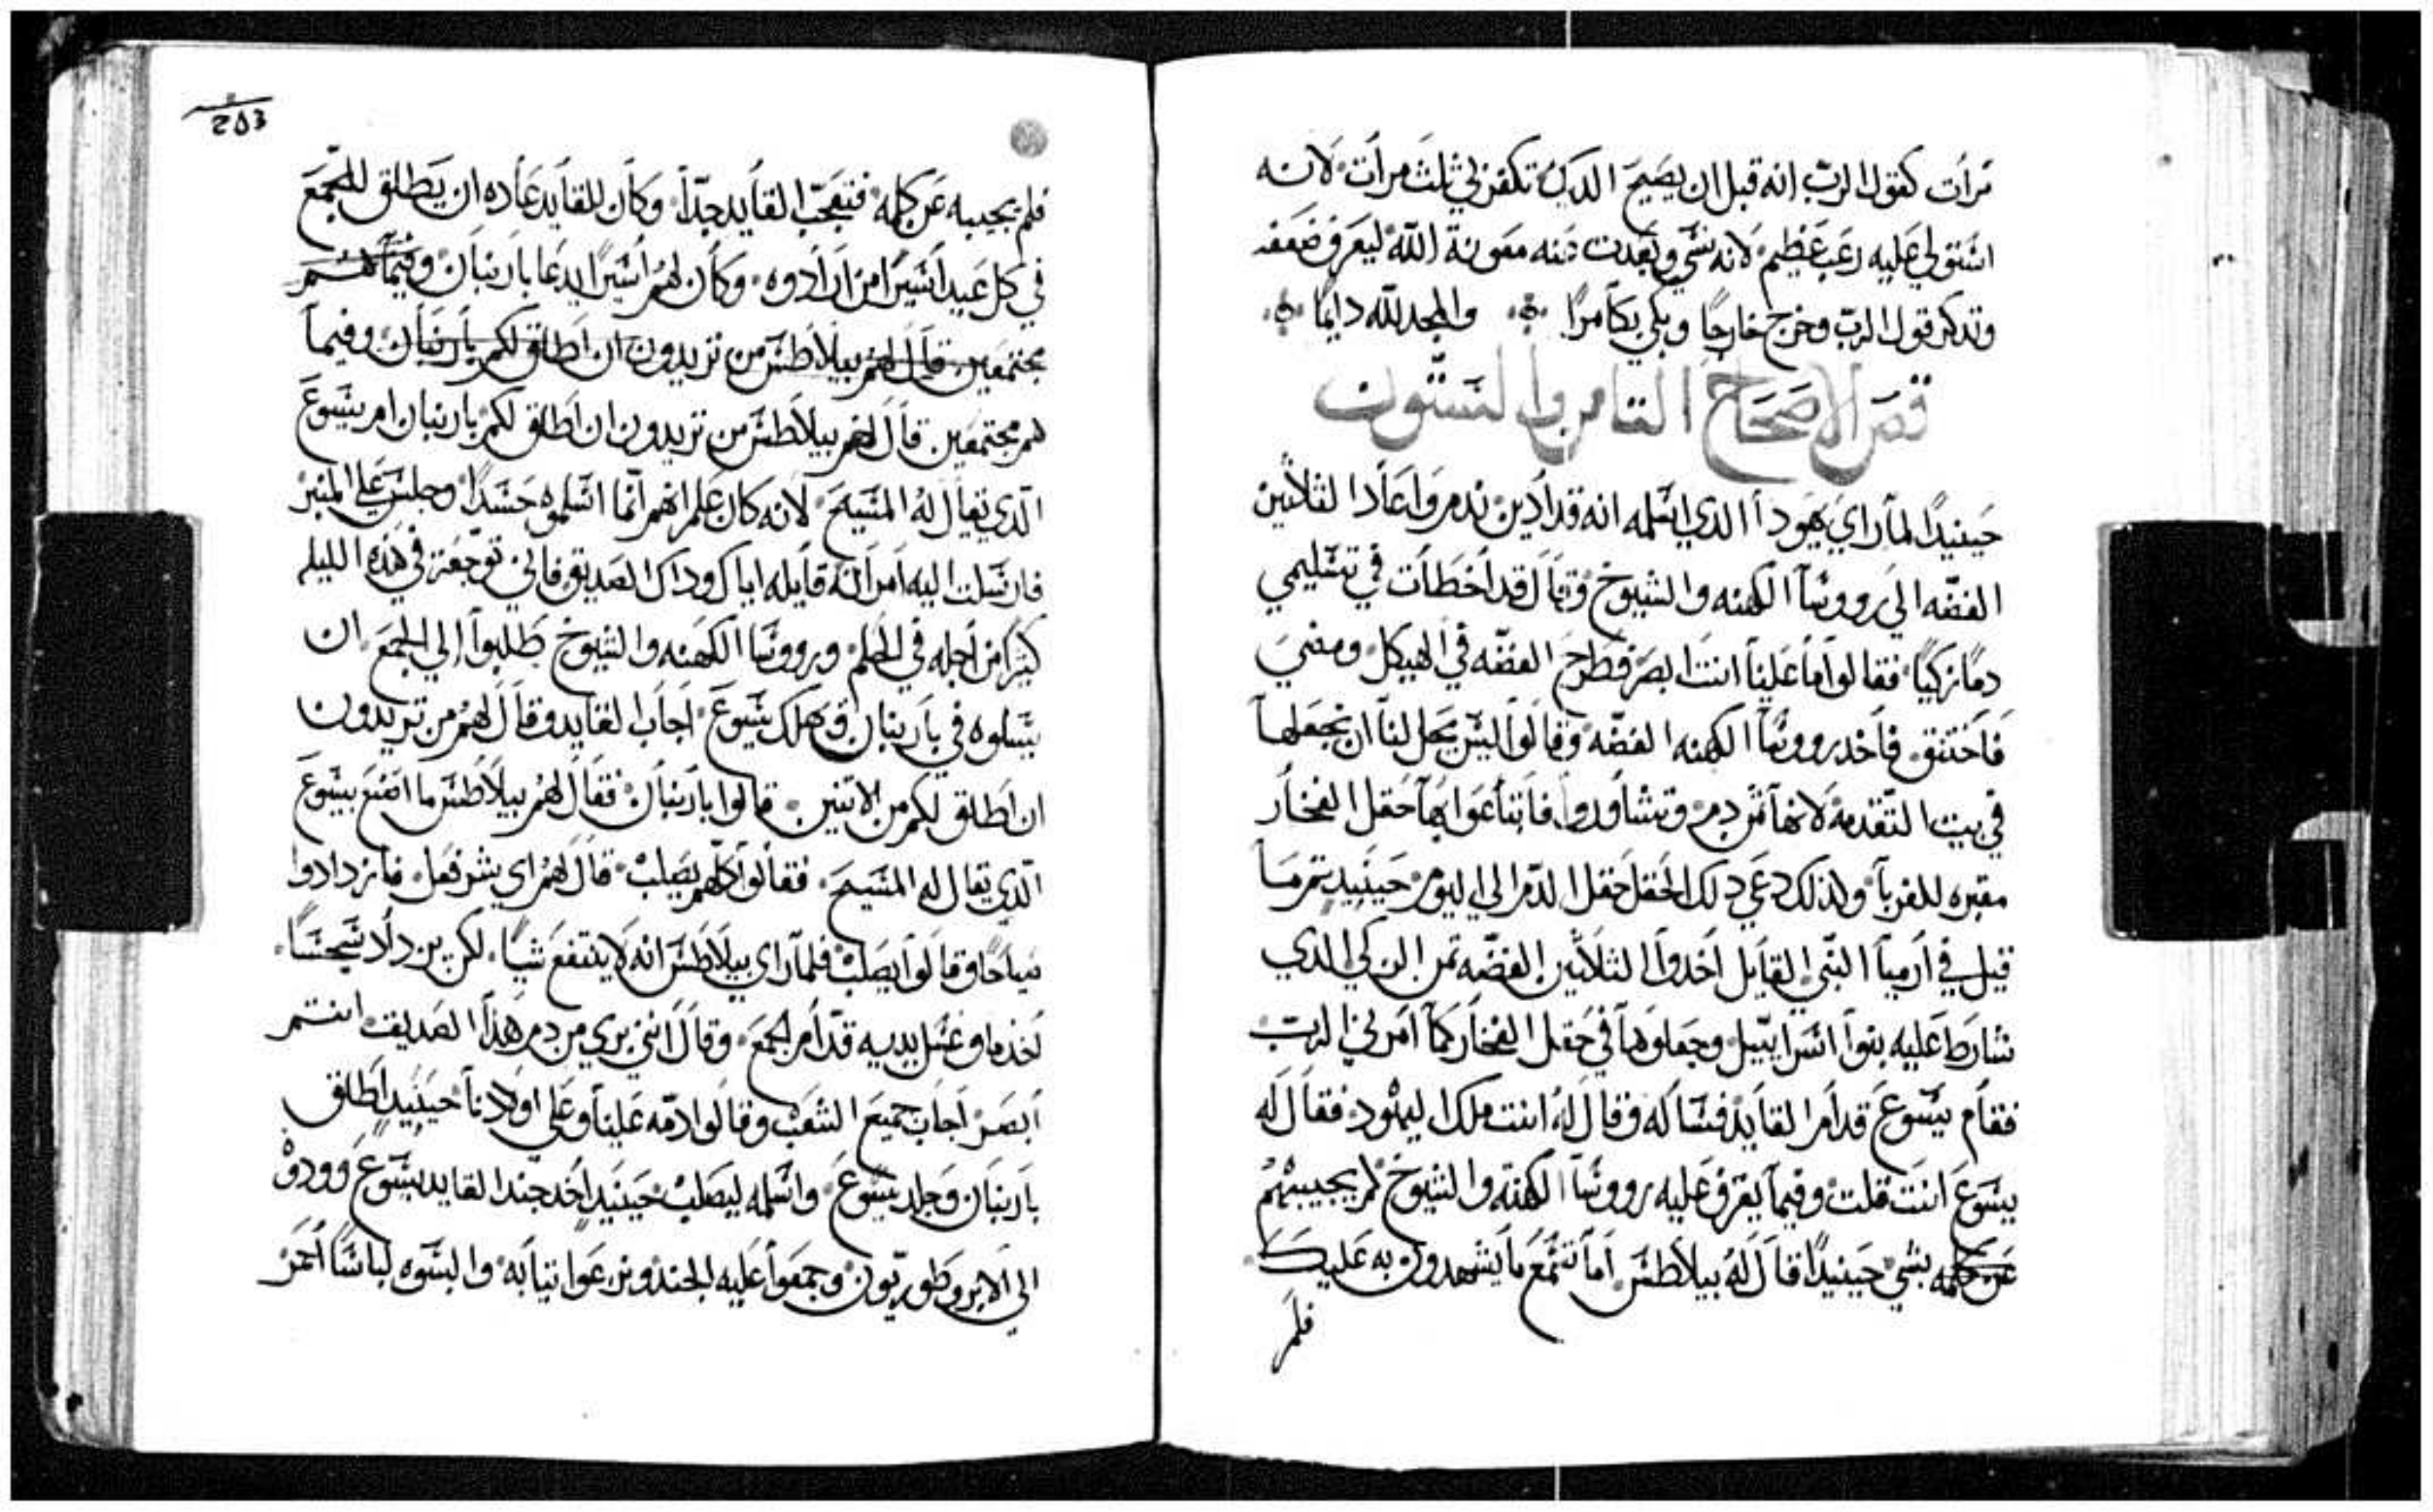 مرات كقول الرب انه قبل ان يصيح الديك تكفر بي ثلث مرات لانه
استولي عليه رعب عظيم لانه نسي وبعدت منه معونة الله ليعرف ضعفه
وتذكر قول الرب وخرج خارجًا وبكي بكآ مرًا والمجد لله دايمًا
فصر الاصحاح الثامن والستون
حينيدًا لمآ راي يهودا الدي اسلمه انه قد ادين ندم واعاد الثلاثين
الفضّه الي رووسآ الكهنه والشيوخ وقال قد اخطأت في تسليمي
دمًا زكيًا فقالوا ما علينا انت ابصر فطرح الفضه في الهيكل ومضي
فاختنق فاخد رووسآ الكهنه الفضّه وقالوا ليس يحل لنا ان نجعلها
في بيت التقدمة لانها ثمن دم وتشاوروا فابتاعوا بها حقل الفخار
مقبره للغربآ ولذلك دعي دلك الحقل حقل الدم الي اليوم حينيد تم ما
قيل في ارميآ النبي القايل اخدوا الثلاثين الفضّه ثمن الزكي الدي
شارط عليه بنوا اسراييل وجعلوها في حقل الفخار كما امرني الرب
فقام يسوع قدام القايد فساله وقال له انت ملك اليهود فقال له
يسوع انت قلت وفيما يقرف عليه رووسآ الكهنه والشيوخ لم يجيبهم
عن كلمه بشي حينيدًا قال له بيلاطس اما تسمع ما يشهدون به عليك
فلم
203
فلم يجيبه عن كلمه فتعجب القايد جدّا وكان للقايد عاده ان يطلق للجمع
في كل عيد اسيرًا من ارادوه وكان لهم اسيرًا يدعا باربنان وفيما هم
مجتمعين قال لهم بيلاطس من تريدون ان اطلق لكم باربنان وفيما
هم مجتمعين قال لهم بيلاطس من تريدون ان اطلق لكم باربنان ام يسوع
الّدي يقال له المسيح لانه كان علم انهم انّما اسلموه حسدًا وجلس علي المنبر
فارسلت اليه امراته قايله اياك وداك الصديق فاني توجعت في هذه الليله
كثيرًا من اجله في الحلم ورووسا الكهنه والشيوخ طلبوا إلي الجمع ان
يسلوه في باربنان ويهلك يسوع اجاب القايد وقال لهم من تريدون
ان اطلق لكم من الاتنين قالوا باربنان فقال لهم بيلاطس ما اصنع بيسوع
الّدي يقال له المسيح فقالوا كلّهم يصلب قال لهم اي شر فعل فازدادوا
صياحًا وقالوا يصلب فلمّا راي بيلاطس انه لا ينتفع شيًا لكن يزداد سجسًا
اخد ما وغسل يديه قدّام الجمع وقال انني بري من دم هذا الصديق انتم
ابصر اجاب جميع الشعب وقالوا دمّه علينا وعلي اولادنا حينيد اطلق
باربنان وجلد يسوع واسلمه ليصلب حينيد اخد جند القايد يسوع وودوه
الي الابروطوريّون وجمعوا عليه الجند ونزعوا تيابه والبسوه لباسًا احمر